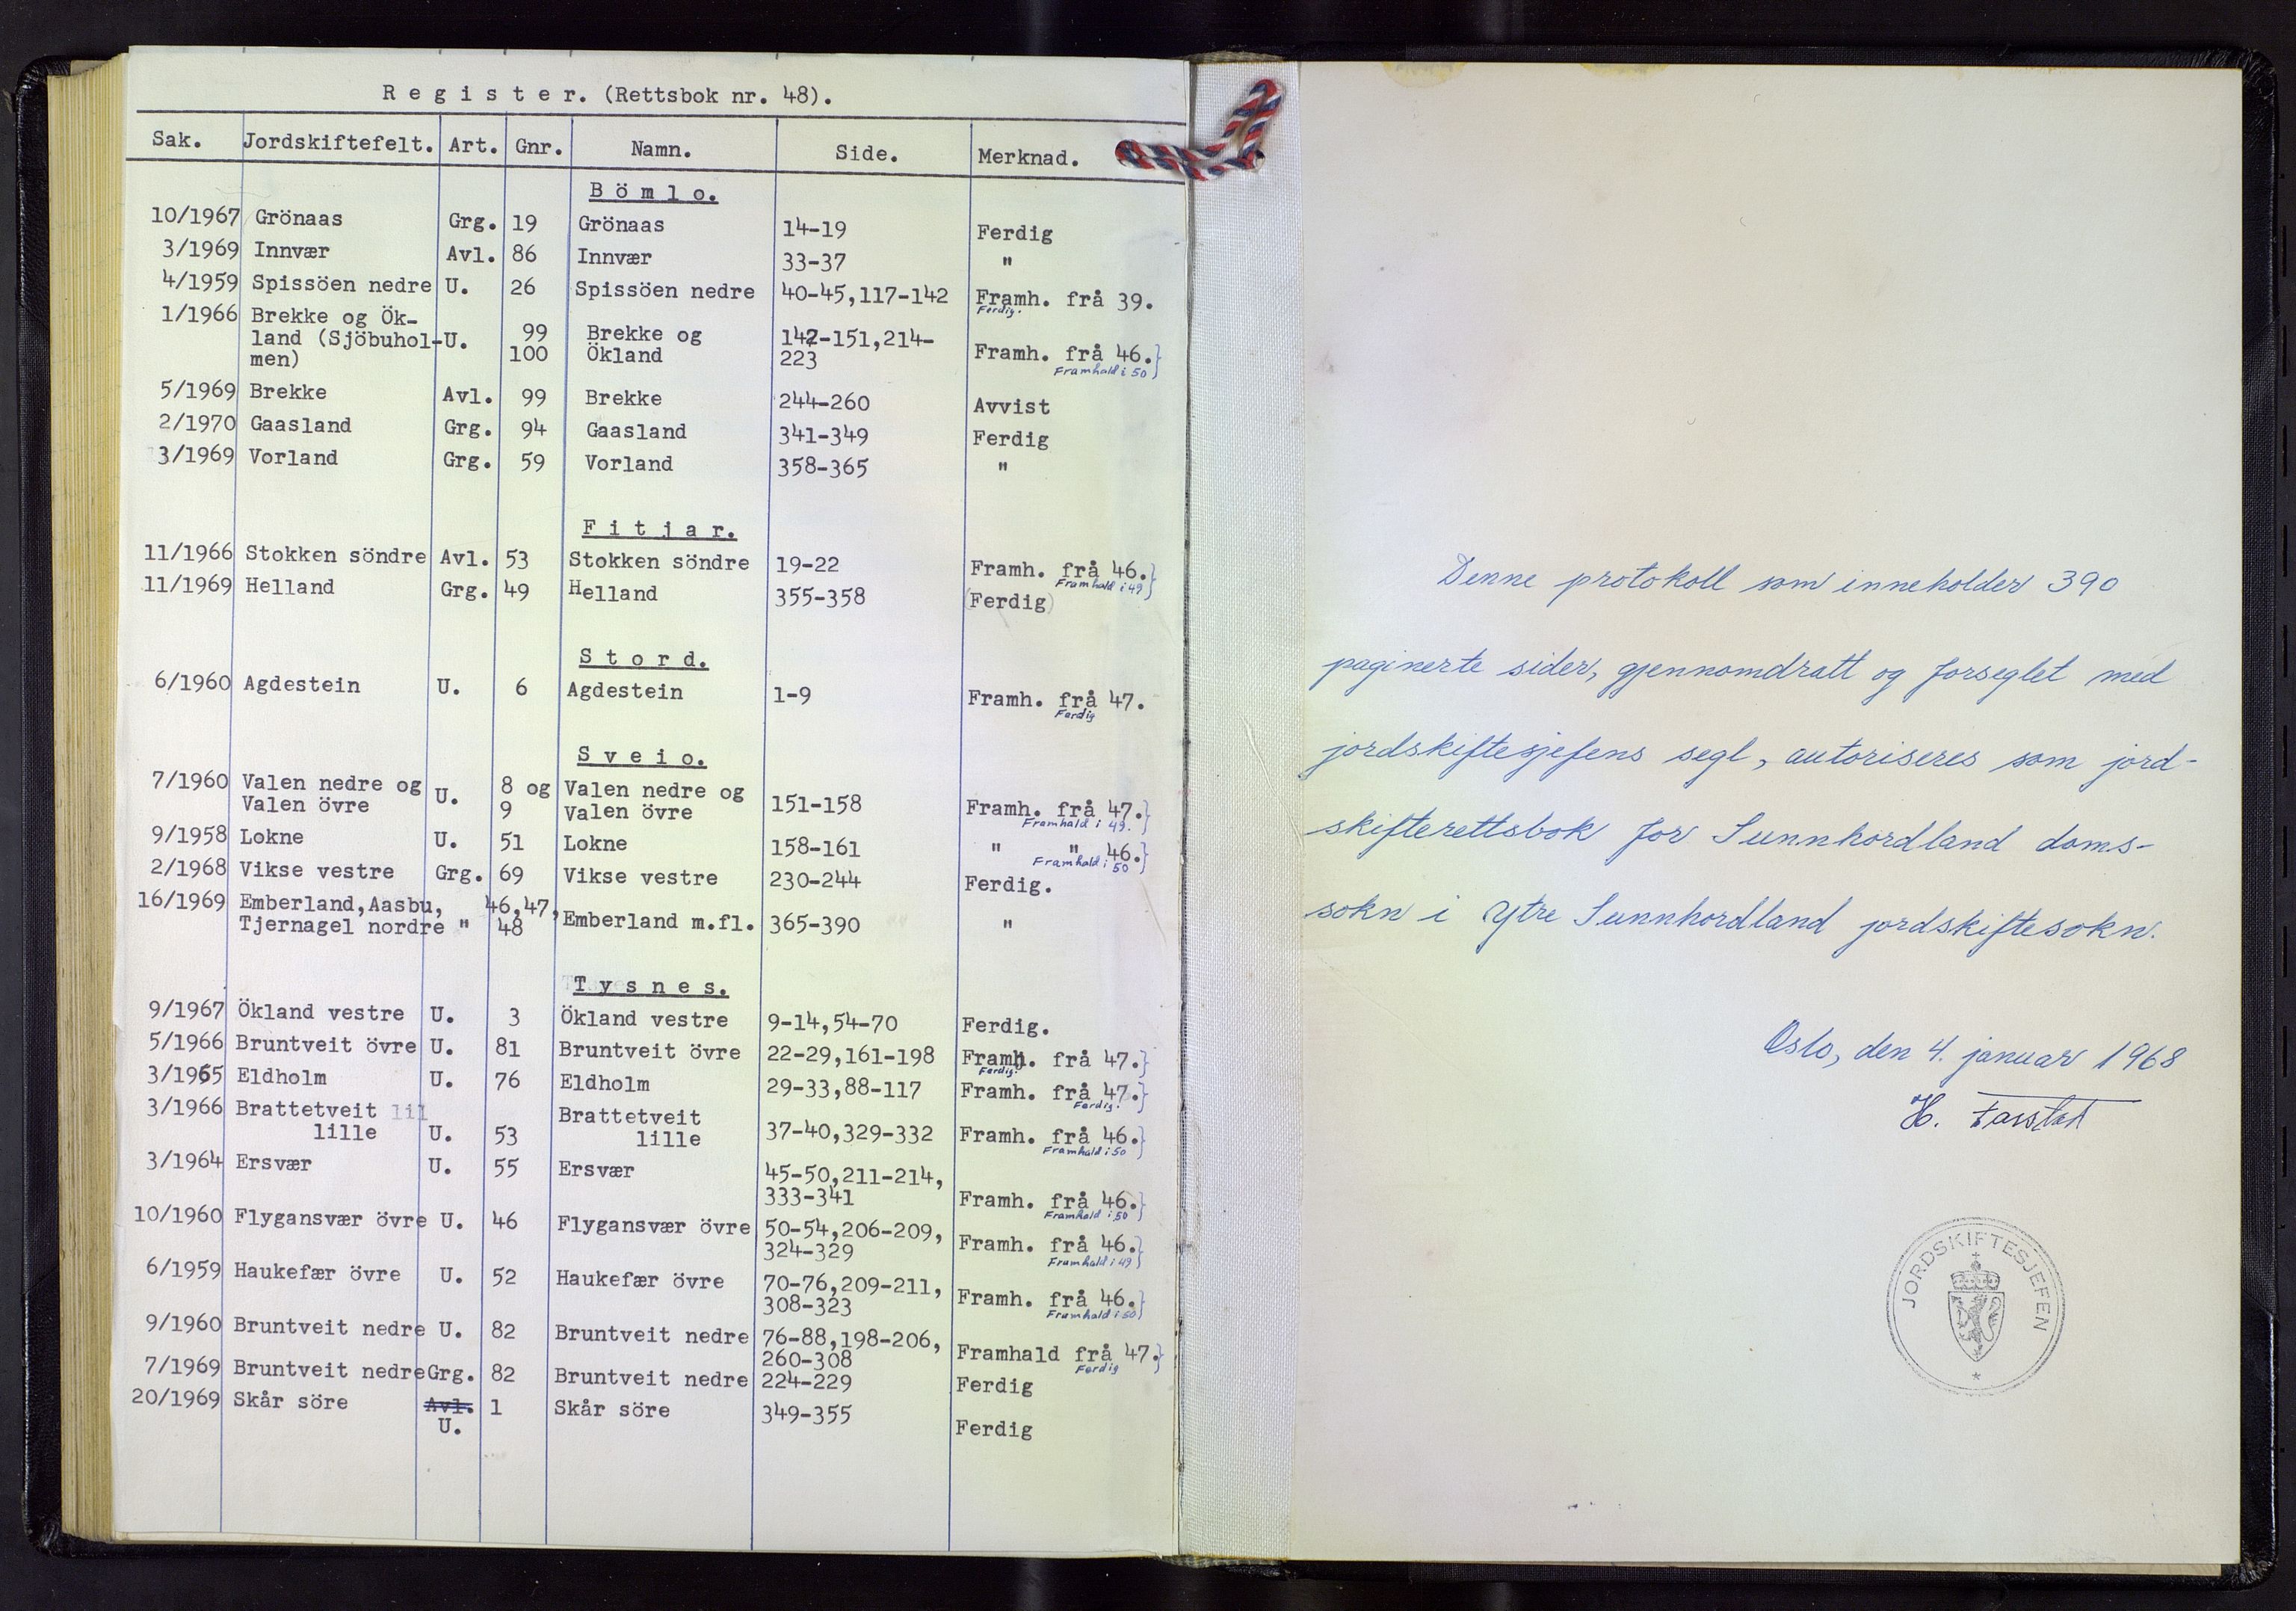 R e g i s t e r. (Rettsbok nr. 48).
Sak. Jordskiftefelt. Art. Gnr. Namn. Side. Merknad.
B ö m l o.
10/1967 Grönaas Grg. 19 Grönaas 14-19 Ferdig
3/1969 Innvær Avl. 86 Innvær 33-37 "
4/1959 Spissöen nedre U. 26 Spissöen nedre 40-45,117-142 Framh. frå 39.
Ferdig.
1/1966 Brekke og Ök-
land (Sjöbuhol- U. 99 Brekke og 142-151,214-
men) 100 Ökland 223 Framh. frå 46.}
Framhald i 50
5/1969 Brekke Avl. 99 Brekke 244-260 Avvist
2/1970 Gaasland Grg. 94 Gaasland 341-349 Ferdig
3/1969 Vorland Grg. 59 Vorland 358-365 "
F i t j a r.
11/1966 Stokken söndre Avl. 53 Stokken söndre 19-22 Framh. frå 46.}
Framhald i 49
11/1969 Helland Grg. 49 Helland 355-358 (Ferdig)
S t o r d.
6/1960 Agdestein U. 6 Agdestein 1-9 Framh. frå 47.
Ferdig
S v e i o.
7/1960 Valen nedre og U. 8 og Valen nedre og
Valen övre 9 Valen övre 151-158 Framh. frå 47.}
Framhald i 49.
9/1958 Lokne U. 51 Lokne 158-161 " " 46.}
Framhald i 50
2/1968 Vikse vestre Grg. 69 Vikse vestre 230-244 Ferdig.
16/1969 Emberland,Aasbu, 46,47,
Tjernagel nordre " 48 Emberland m.fl. 365-390 "
T y s n e s.
9/1967 Ökland vestre U. 3 Ökland vestre 9-14,54-70 Ferdig.
5/1966 Bruntveit övre U. 81 Bruntveit övre 22-29,161-198 Framh. frå 47.}
Ferdig.
3/1965 Eldholm U. 76 Eldholm 29-33,88-117 Framh. frå 47.}
Ferdig.
3/1966 Brattetveit lil Brattetveit
lille U. 53 lille 37-40,329-332 Framh. frå 46.}
Framhald i 50
3/1964 Ersvær U. 55 Ersvær 45-50,211-214,
333-341 Framh. frå 46.}
Framhald i 50
10/1960 Flygansvær övre U. 46 Flygansvær övre 50-54,206-209,
324-329 Framh. frå 46.}
Framhald i 49
6/1959 Haukefær övre U. 52 Haukefær övre 70-76,209-211,
308-323 Framh. frå 46.}
Framhald i 50
9/1960 Bruntveit nedre U. 82 Bruntveit nedre 76-88,198-206,
260-308 Framhald frå 47.}
Ferdig
7/1969 Bruntveit nedre Grg. 82 Bruntveit nedre 224-229 Ferdig
20/1969 Skår söre Avl. 1 Skår söre 349-355
U. Ferdig
Denne protokoll som inneholder 390
paginerte sider, gjennomdratt og forseglet med
jordskiftesjefens segl, autoriseres som jord-
skifterettsbok for Sunnhordland doms-
sokn i Ytre Sunnhordland jordskiftesokn.
Oslo, den 4. januar 1968
H. Farstad
JORDSKIFTESJEFEN